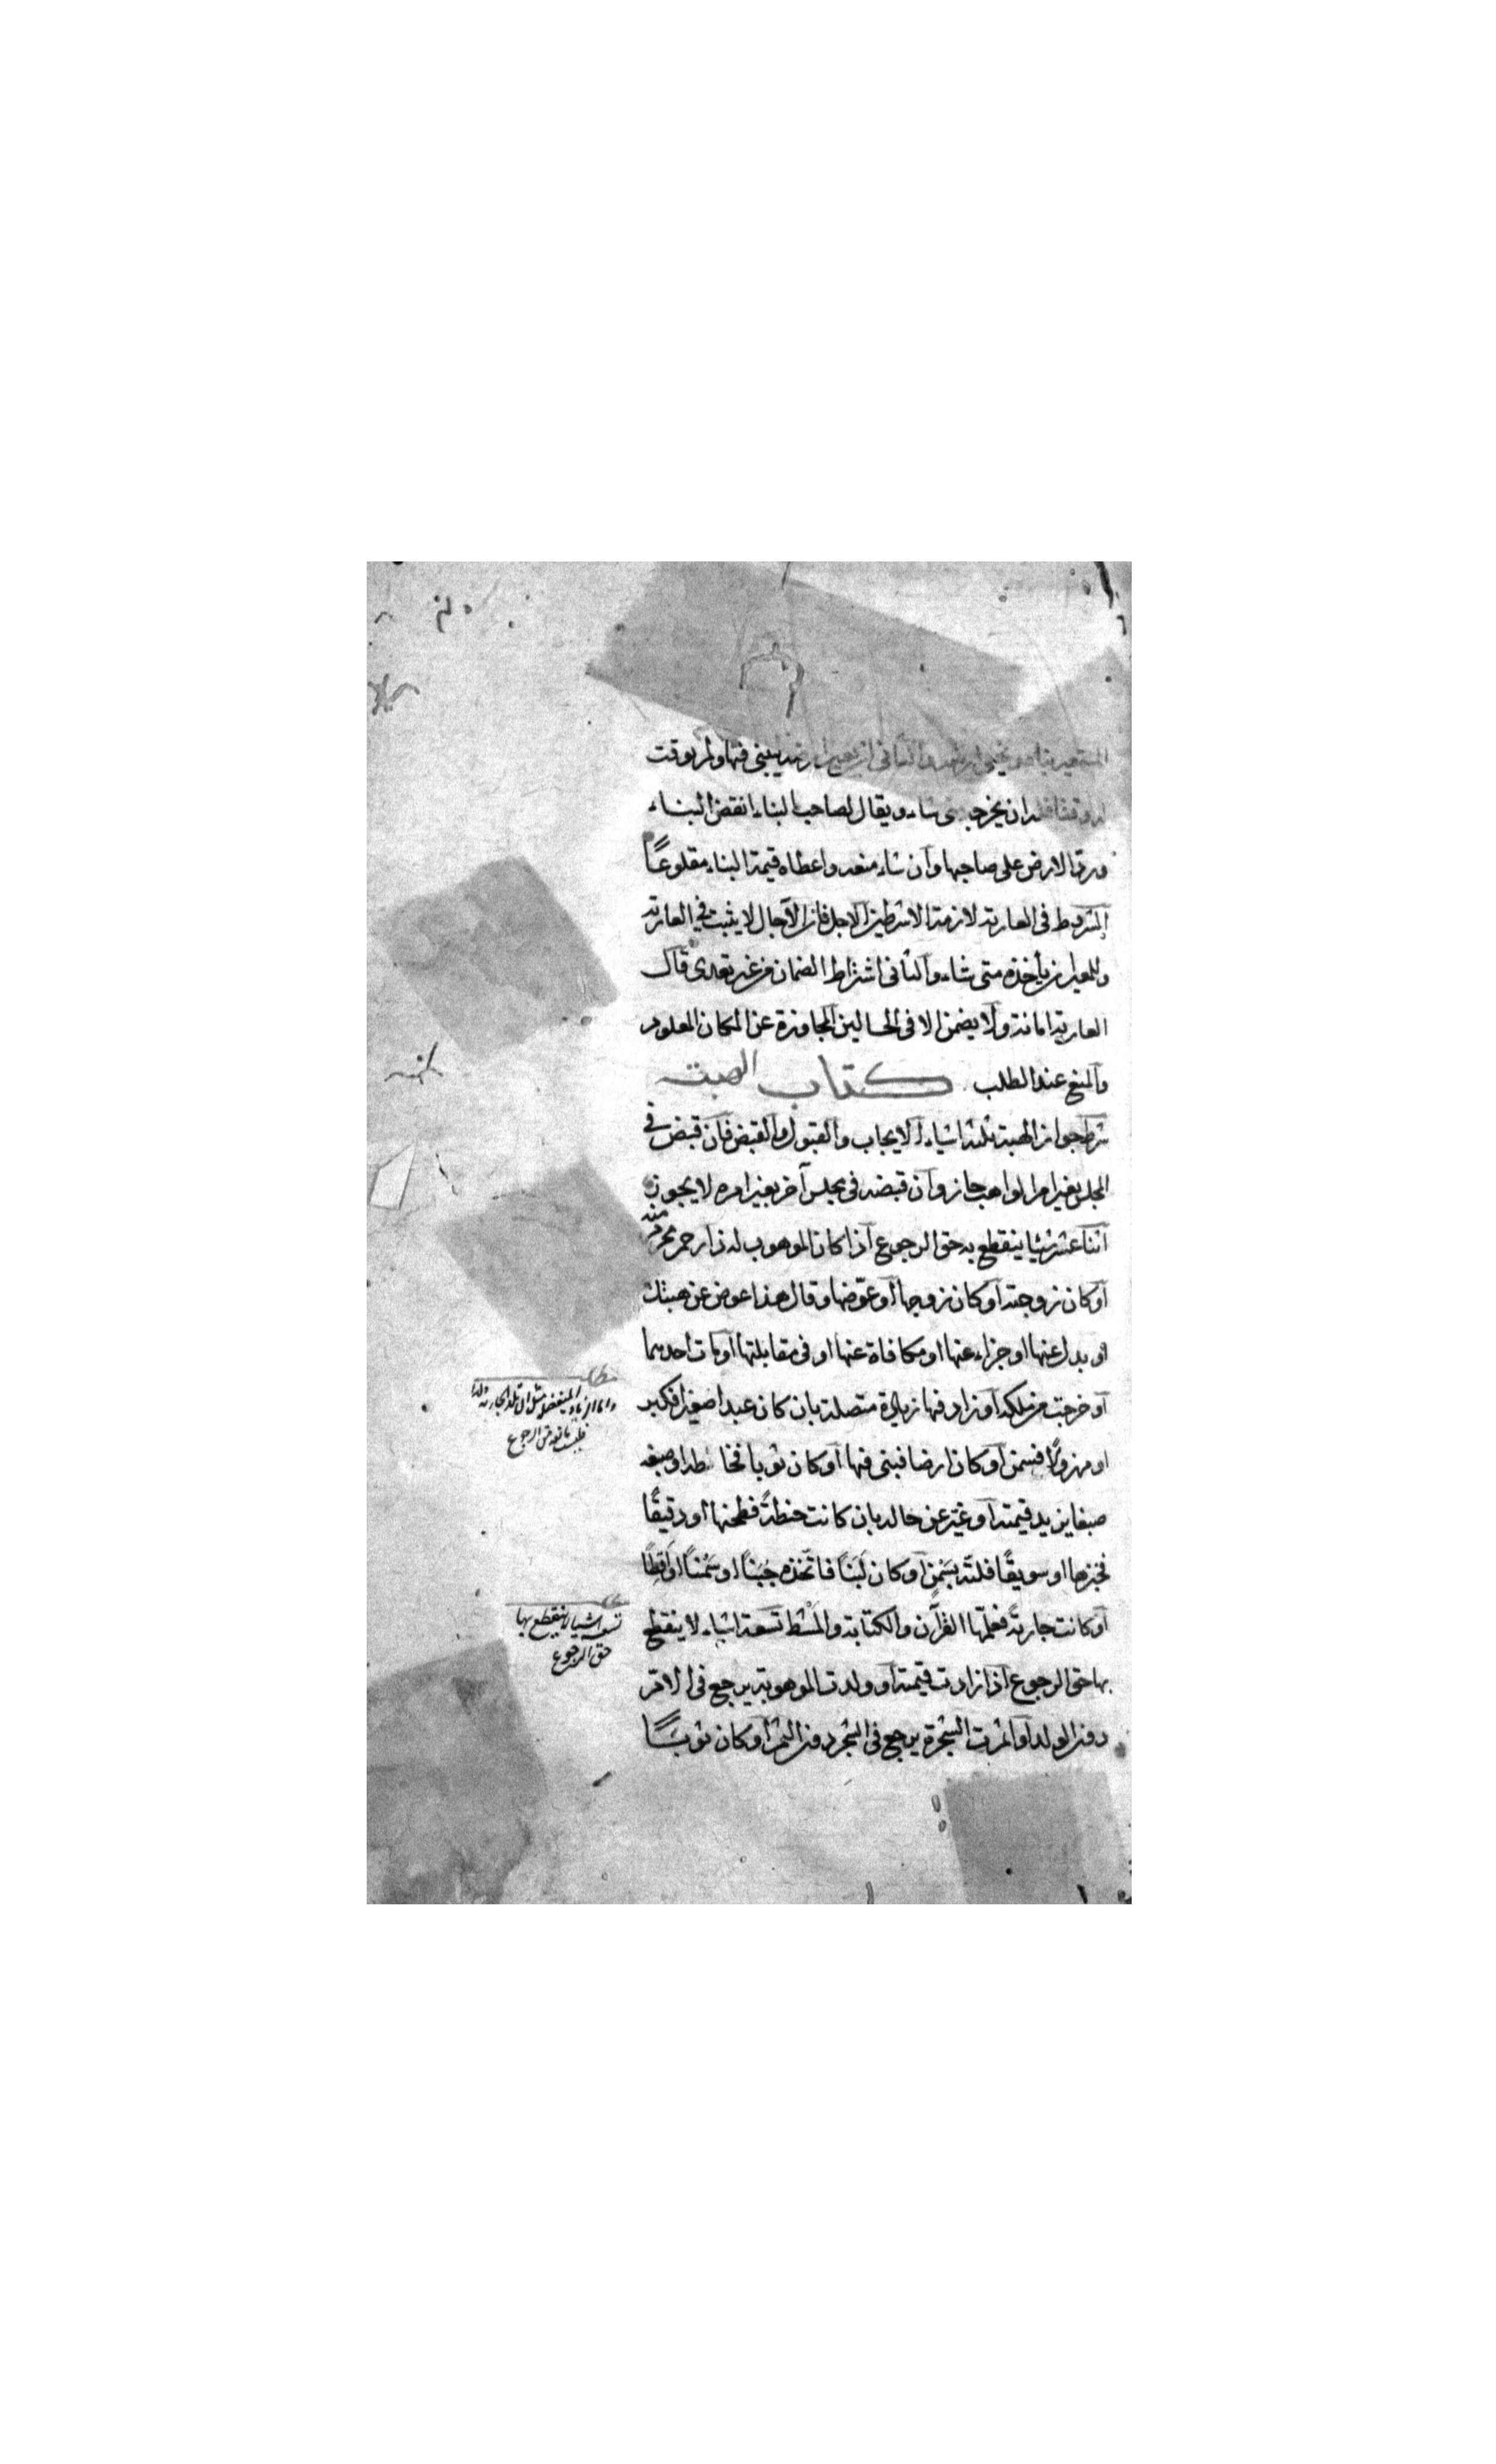 المستعير بناء والثاني ان يعير ارضه ليبني فيها ولم يوقت
ان يخرجه متى شاء ويقال لصاحب البناء انقض البناء
ورد الارض على صاحبها وآن شاء منعه واعطاه قيمة البناء مقلوعًا
الشروط فى العارية لازمة الا شرطين الاجل فان الآجال لا يثبت في العارية
وللمعير ان يأخذه متى شاء والثانى اشتراط الضمان من غير تعدى قال
العارية امانة ولا يضمن الا فى الحالين المجاوزة عن المكان المعلوم
والمنع عند الطلب كتاب الهبة
شرط جواز الهبة ثلثة اشياء الايجاب والقبول والقبض فان قبض في
المجلس بغير امر الواهب جاز وآن قبضه فى مجلس آخر بغير امره لا يجوز
اثنا عشر شيئا ينقطع به حق الرجوع آذا كان الموهوب له ذا رحم محرم منه
آو كان زوجته آو كان زوجها او عوّضها وقال هذا عوض عن هبتك
او بدل عنها او جزاء عنها او مكافاة عنها او فى مقابلتها او مات احدهما
آو خرجت من ملكه آو زاد فيها زيادة متصلة بان كان عبدا صغيرا فكبر
او مهزولًا فسمن آو كان ارضا فبنى فيها آو كان ثوبا فخاطه او صبغه
صبغا يزيد قيمته آو غيّر عن حاله بان كانت حنطةً فطحنها او دقيقًا
فخبزها او سويقًا فلتّه بسَمنٍ آو كان لَبَنًا فاتّخذه جُبَنًا او سَمْنًا او اَقِطًا
آو كانت جاريةً فعلّمها القرآن والكتابة والمَشْط تسعة اشياء لا ينقطع
بها حق الرجوع آذا زادت قيمته او ولدت الموهوبة يرجع فى الام
دون الولد آو اثمرت الشجرة يرجع فى الشجر دون الثمر آو كان ثوبًا
واما الزيادة المنفصلة مثل ان تلد الجارية ولدا
فليست مانعة من الرجوع
تسعة اشياء لا ينقطع بها
حق الرجوع